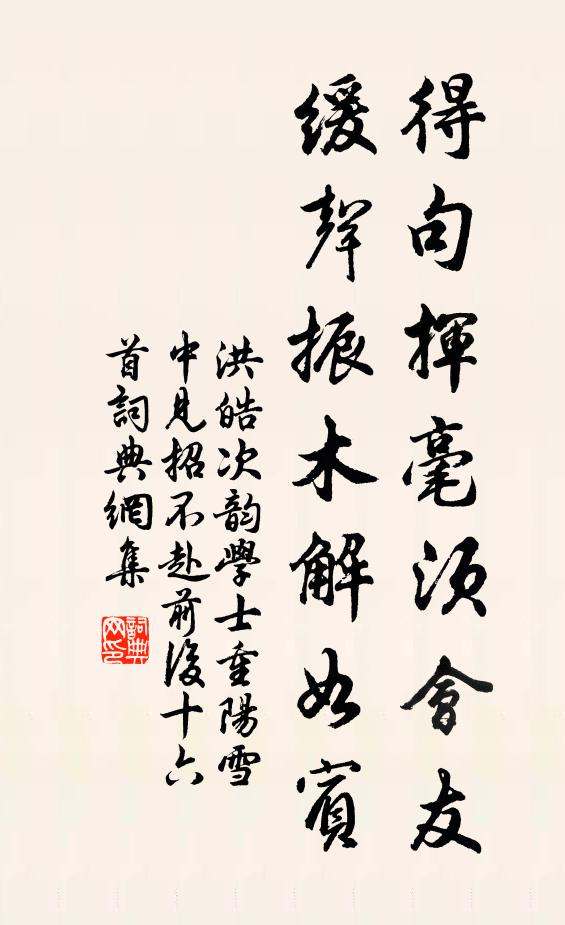 得句揮毫須會友
緩聲振木解如賓
洪皓次韵學士重陽雪
中見招不赴前後十六
首詞典網集
詞典
网印